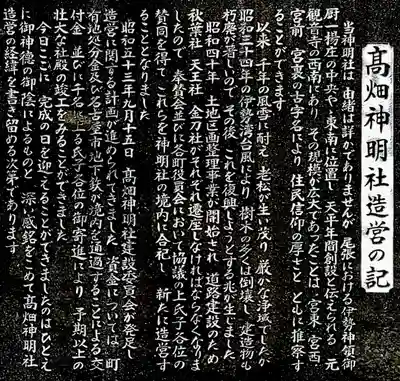 髙畑神明社造営の記
当神明社は 由緒は詳かでありませんが 尾張における伊勢神領御
厨 一楊庄の中央や東南に位置し 天平年間創設と伝えられる 元
観音寺の西南にあり その規模が広大であったことは 宮東 宮西
宮前 宮裏の古字名により 住民信仰の厚さと ともに推察す
ることができます
以来 千年の風雪に耐え 老松が生い茂り 厳かな浄域でしたが
昭和三十四年の伊勢湾台風により 樹木の多くは倒壊し 建造物も
朽廃が著しいので その後 これを復興しようとする兆が生じました
昭和四十年 土地区画整理事業が開始され 道路建設のため
秋葉社 天王社 金刀社がそれぞれ遷座しなければならなくなりま
したので 奉賛会並びに各町役員会において協議の上氏子各位の
賛同を得て これらを神明社の境内に合祀し 新たに造営す
ることとなりました
昭和五十三年九月十五日 髙畑神明社建設委員会が発足し
造営に関する計画が進められてきました 資金については 町
有地処分金及び名古屋市地下鉄が境内を通過することによる交
付金 並びに千名 る氏子各位の御寄進により 予期以上の
壮大な社殿の竣工をみることができました
今日ここに 完成の日を迎えることができましたのはひとえ
に御神徳の御陰によるものと 深い感銘をこめて髙畑神明社
造営の経緯を書き留める次第であります